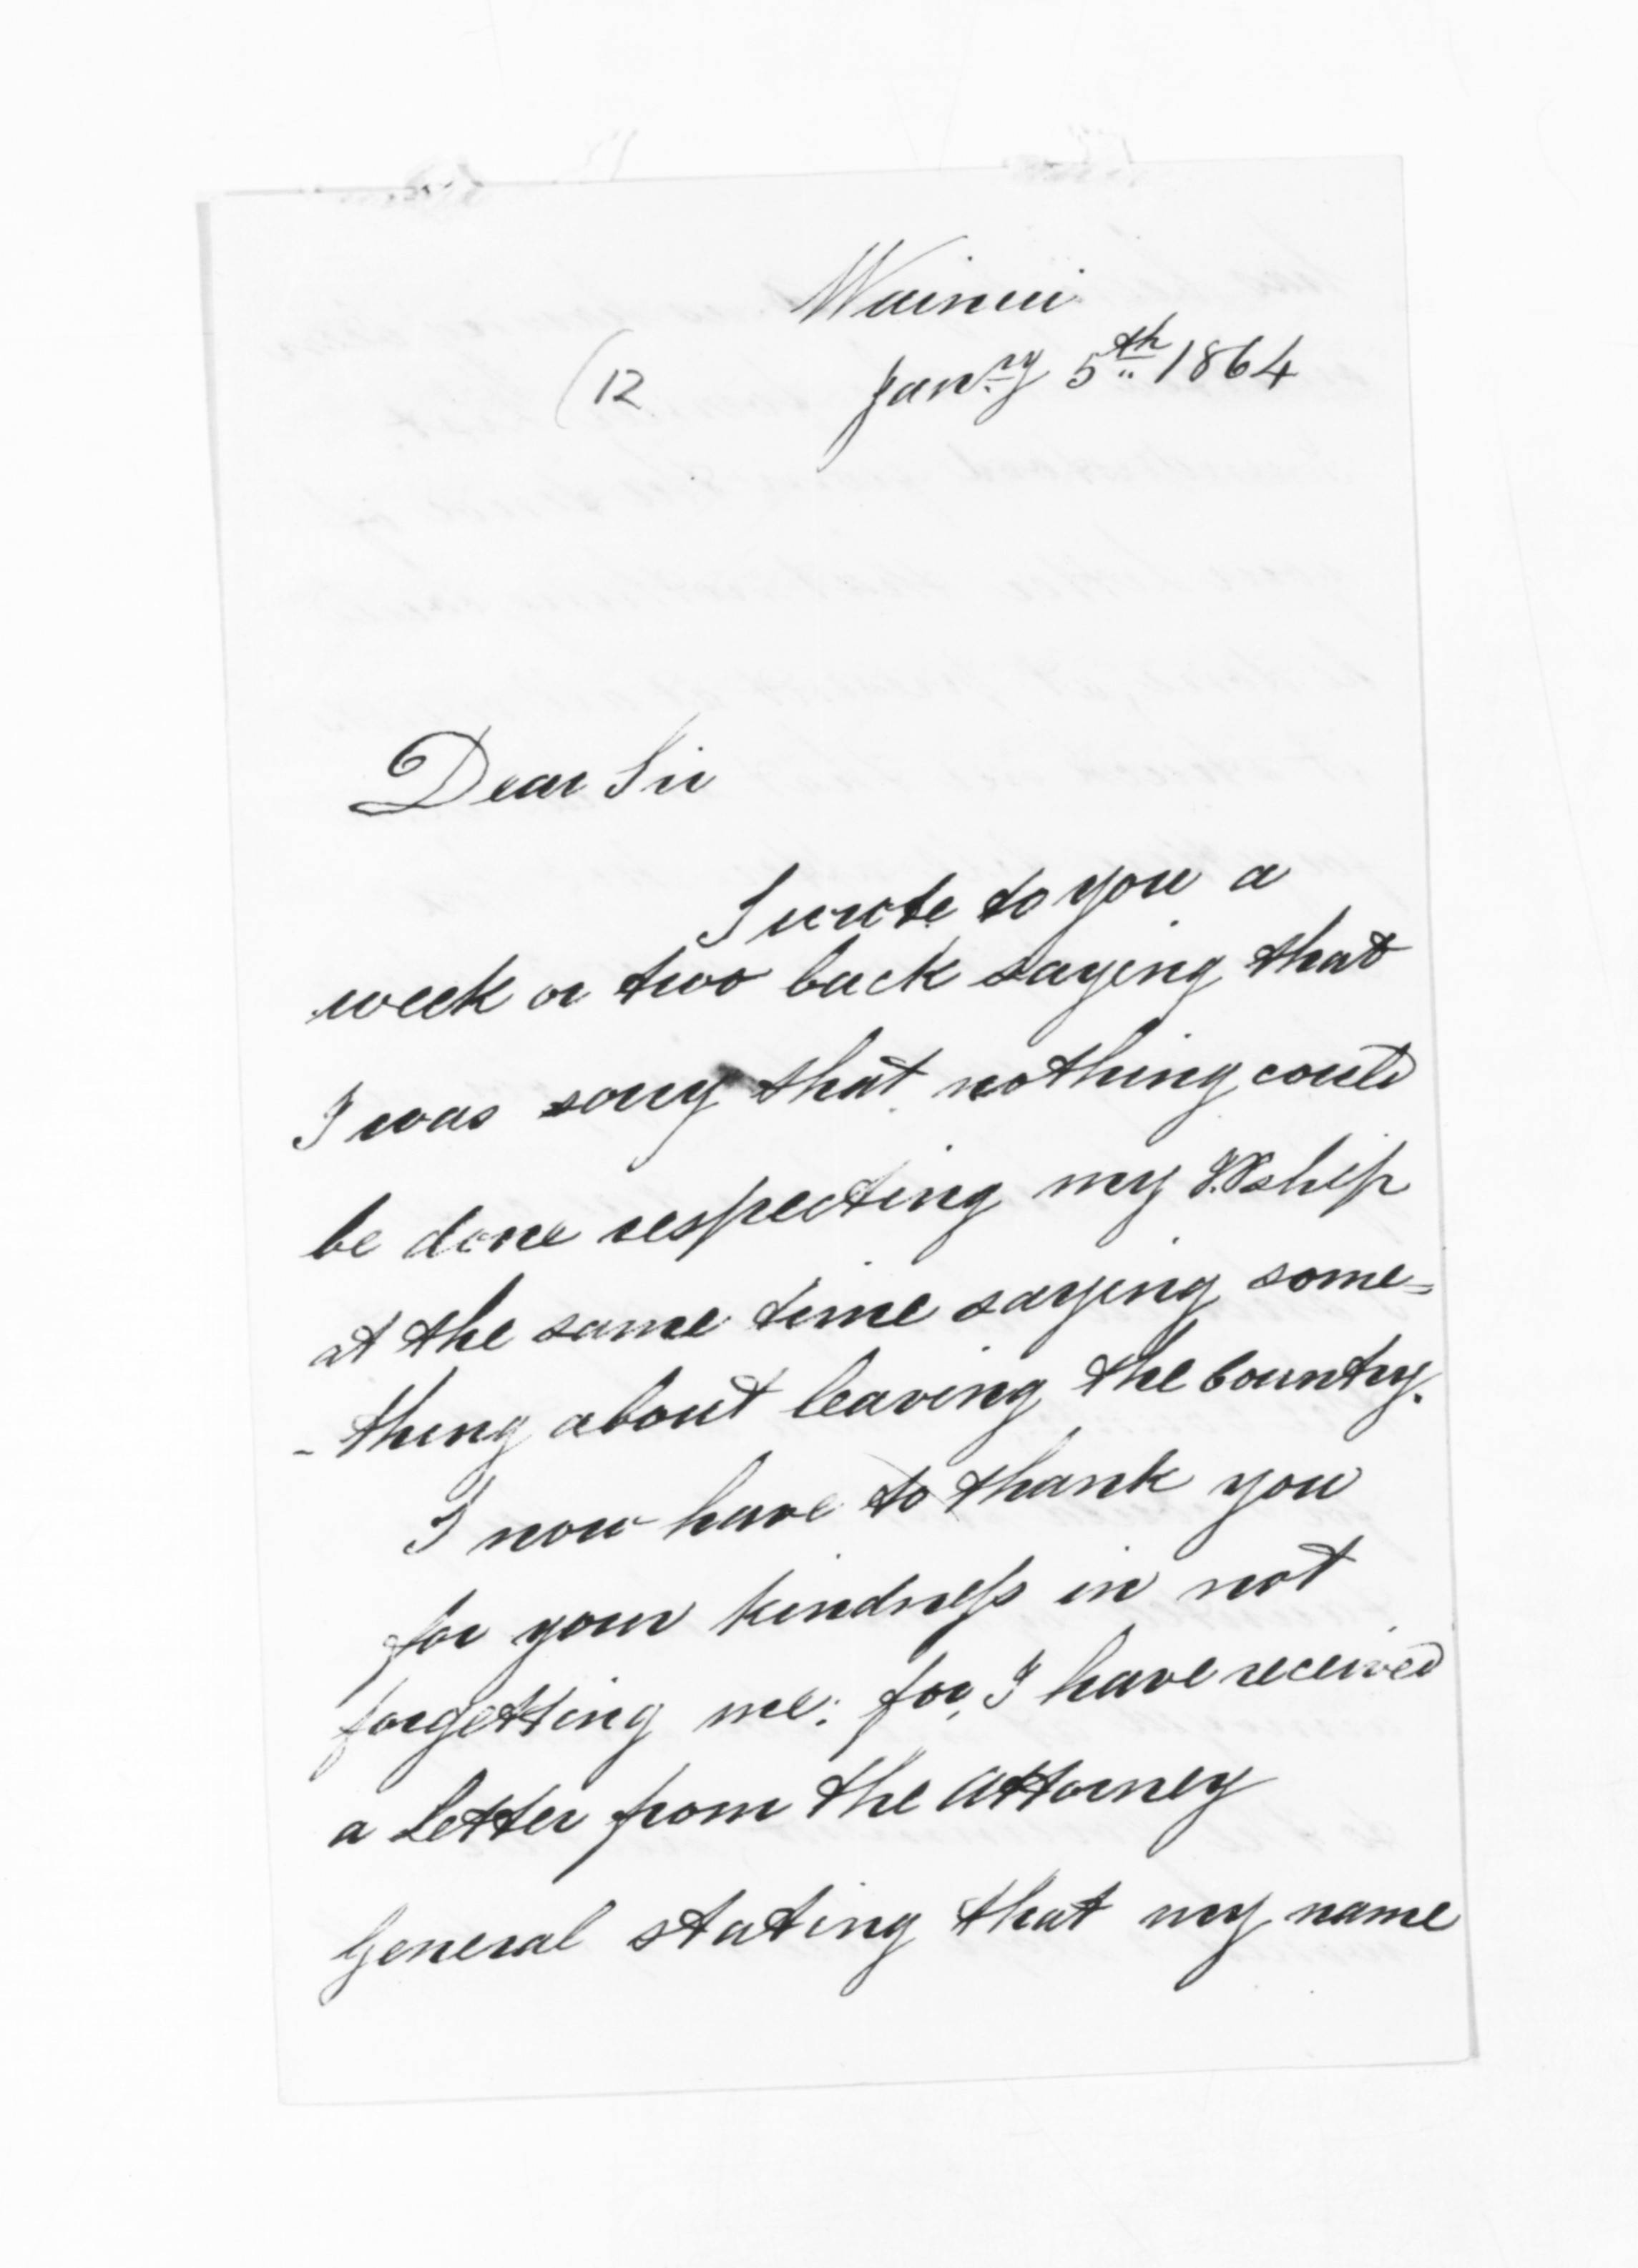 Wainui
(12
Janry 5th 1864
Dear Sir
I wrote to you a
week or two back saying that
I was sorry that nothing could
be done respecting my J.P.ship
at the same time saying some=
-thing about leaving the Country.
I now have to thank you
for your kindness in not
forgetting me: for, I have received
a letter from the Attorney
General stating that my name